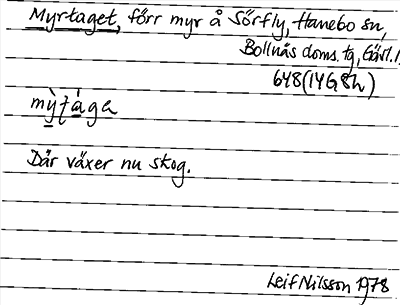 Myrtaget, förr myr å Sörfly, Hanebo sn,
Bollnäs doms. tg, Gävl. l.
648 (14G8h)
mỳtága
Där växer nu skog.
Leif Nilsson 1978